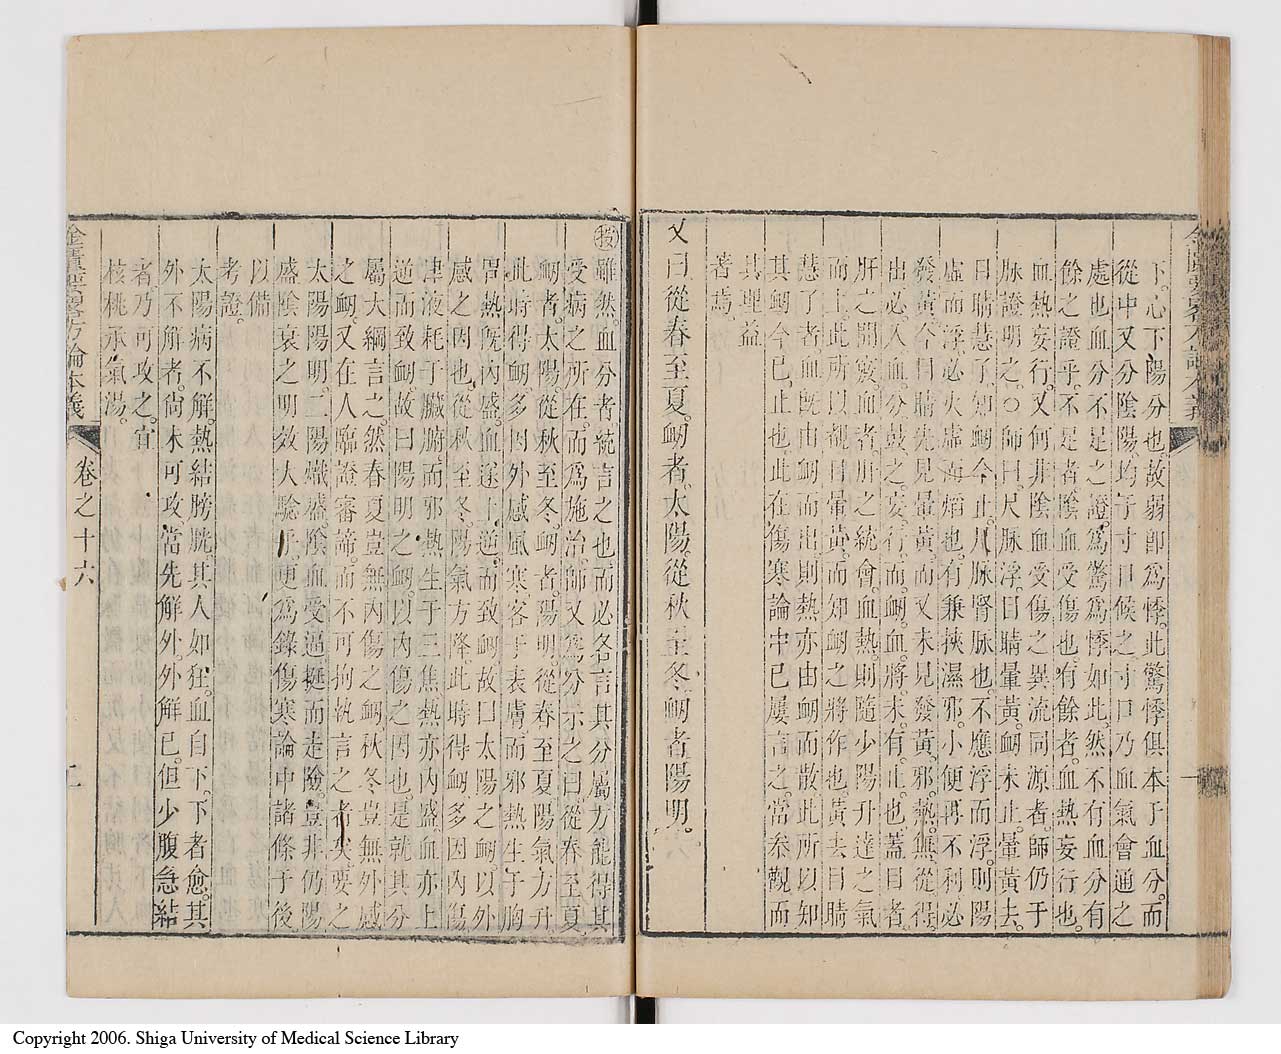 下。心下陽分也故弱卽爲悸。此驚悸俱本于血分。而
從中又分陰陽。均于寸口候之寸口乃血氣會通之
處也血分不足之證。爲驚爲悸如此然不有血分有
餘之證乎。不足者。陰血受傷也。有餘者。血熱妄行也。
血熱妄行。又何非陰血受傷之異流同源者。師仍于
脉證明之。○師曰尺脉浮。目睛暈黃。衂未止。暈黃去。
目睛慧了。知衂今止。尺脉腎脉也。不應浮而浮。則陽
虛而浮。必火虛而焰也。有兼挾濕邪。小便再不利必
發黃。今目睛先見暈黃。而又未見發黃。邪熱無從得
出必入血分。鼓之妄行而衂。血將未有止也。蓋目者。
肝之開竅。血者。肝之統會。血熱則隨少陽升達之氣
而上。此所以覩目暈黃。而知衂之將作也。黃去目睛
慧了者。血旣由衂而出則熱亦由衂而散。此所以知
其衂今已止也。此在傷寒論中已屢言之。當叅觀而
其理益
著焉。
又曰從春至夏。衂者。太陽。從秋至冬。衂者。陽明。
金匱要畧方論本義
卷之十六
按雖然。血分者統言之也。而必各言其分屬。方能得其
受病之所在。而爲施治。師又爲分示之曰從春至夏
衂者。太陽。從秋至冬。衂者。陽明。從春至夏陽氣方升
此時得衂多因外感風寒客于表膚。而邪熱生于胸
胃熱旣內盛。血逐上逆。而致衂。故曰太陽之衂。以外
感之因也。從秋至冬。陽氣方降。此時得衂多因內傷
津液耗于臟腑而邪熱生于三焦熱亦內盛。血亦上
逆而致衂故曰陽明之衂。以內傷之因也。是就其分
屬大綱言之。然春夏豈無內傷之衂。秋冬豈無外感
之衂。又在人臨證審諦。而不可拘執言之者矣。要之
太陽陽明。二陽熾盛。陰血受逼。挺而走險。豈非仍陽
盛陰衰之明效大驗乎。更爲錄傷寒論中諸條于後
以備
考證。
太陽病不解。熱結膀胱。其人如狂。血自下。下者愈。其
外不解者。尙未可攻。當先解外。外解已。但少腹急結
者乃可攻之。宜
核桃承氣湯。
Copyright 2006. Shiga University of Medical Science Library